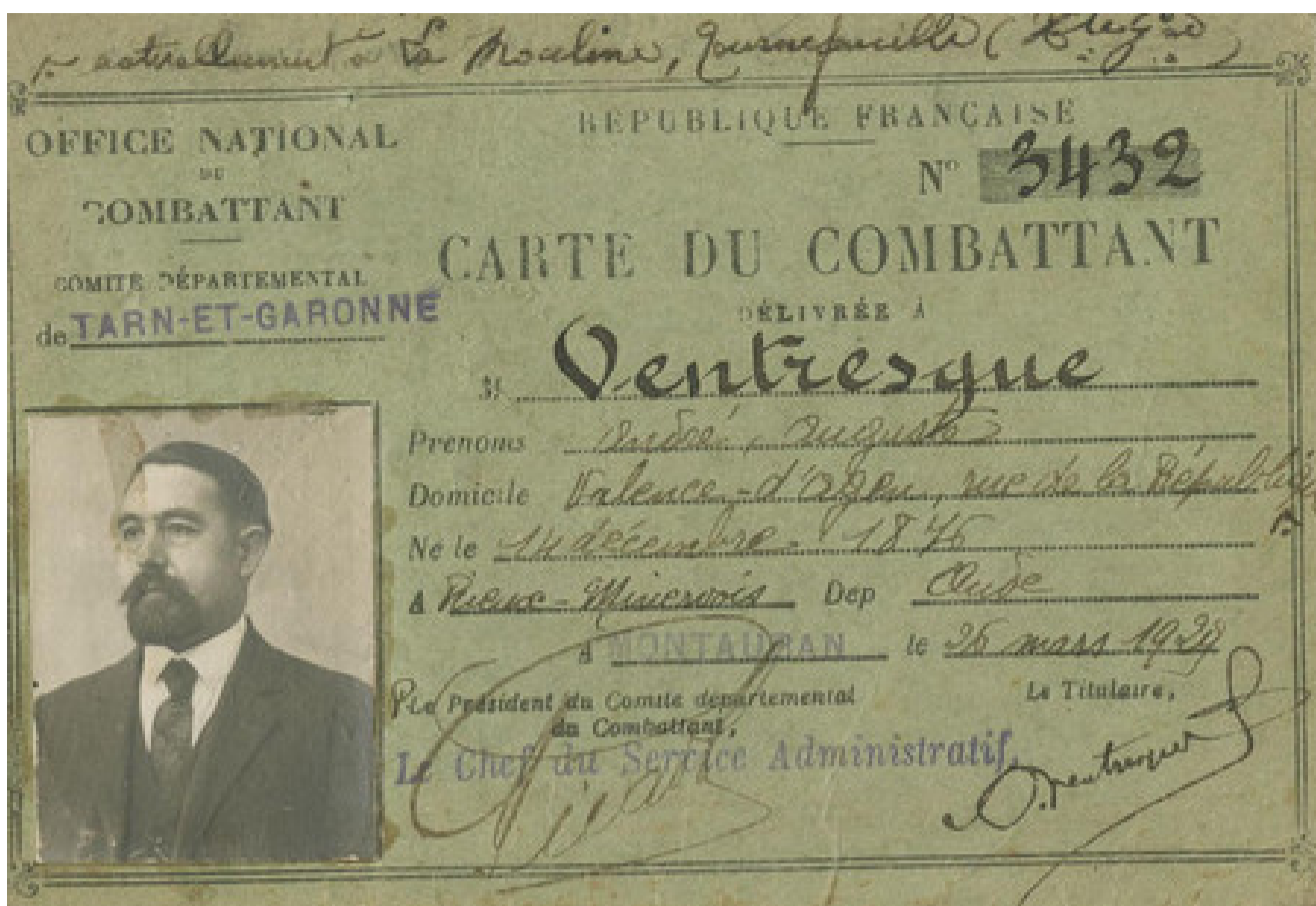 actuellement à La Mouline, Tournefeuille (
OFFICE NATIONAL
DU
COMBATTANT
COMITÉ DÉPARTEMENTAL
de TARN-ET-GARONNE
RÉPUBLIQUE FRANÇAISE
N° 3432
CARTE DU COMBATTANT
DÉLIVRÉE À
M. Ventresque
Prénoms André, Auguste
Domicile Valence-d'Agen, rue de la République
Né le 14 décembre 1876
à Rieux-Minervois Dep Aude
à MONTAUBAN le 26 mars 1929
P. Le Président du Comité départemental
du Combattant,
Le Titulaire,
Le Chef du Service Administratif,
Ventresque